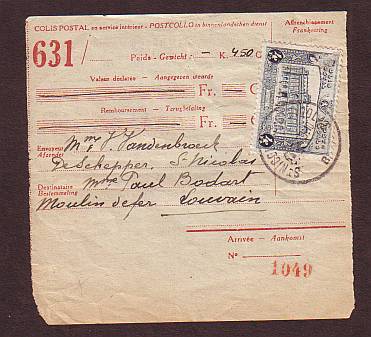 COLIS POSTAL en service intérieur - POSTCOLLO in binnenlandschen dienst
Affranchissement
Frankeering
631/
Poids - Gewicht : — K. 4.50 G
Valeur déclarée - Aangegeven waarde
Fr.
Remboursement - Terugbetaling
Fr.
Envoyeur
Afzender
Mme J. Vandenbroeck
De Schepper, St Nicolas
Destinataire
Bestemmeling
Mme Paul Bodart
Moulin de fer Louvain
Arrivée - Aankomst
No
1049